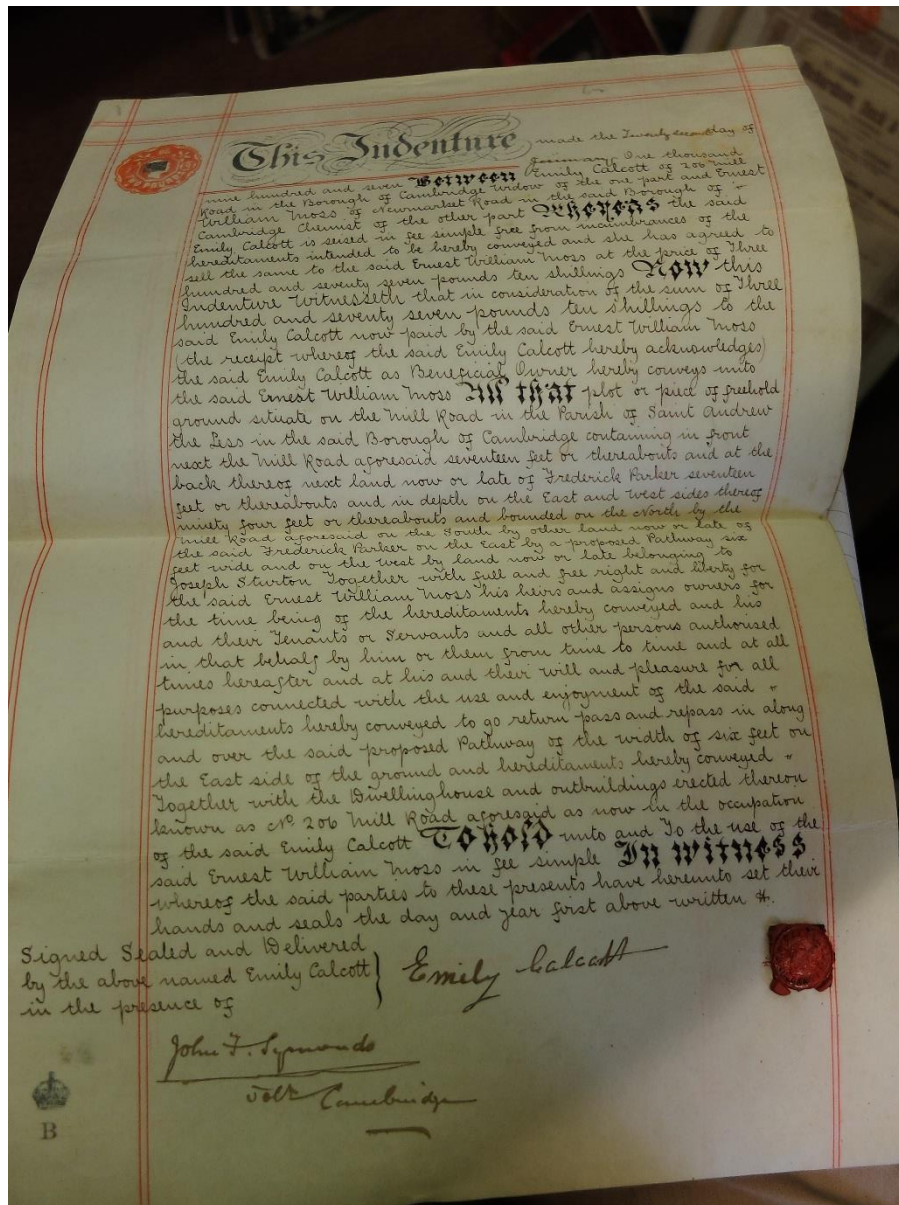 This Indenture made the Twenty second day of
January One thousand
nine hundred and seven Between Emily Calcott of 206 Mill
Road in the Borough of Cambridge Widow of the one part and Ernest
William Moss of Newmarket Road in the said Borough of
Cambridge Chemist of the other part Whereas the said
Emily Calcott is seised in fee simple free from incumbrances of the
hereditaments intended to be hereby conveyed and she has agreed to
sell the same to the said Ernest William Moss at the price of Three
hundred and seventy seven pounds ten shillings Now this
Indenture Witnesseth that in consideration of the sum of Three
hundred and seventy seven pounds ten shillings to the
said Emily Calcott now paid by the said Ernest William Moss
(the receipt whereof the said Emily Calcott hereby acknowledges)
the said Emily Calcott as Beneficial Owner hereby conveys unto
the said Ernest William Moss All that plot or piece of freehold
ground situate on the Mill Road in the Parish of Saint Andrew
the Less in the said Borough of Cambridge containing in front
next the Mill Road aforesaid seventeen feet or thereabouts and at the
back thereof next land now or late of Frederick Parker seventeen
feet or thereabouts and in depth on the East and West sides thereof
ninety four feet or thereabouts and bounded on the North by the
Mill Road aforesaid on the South by other land now or late of
the said Frederick Parker on the East by a proposed Pathway six
feet wide and on the West by land now or late belonging to
Joseph Sturton Together with full and free right and liberty for
the said Ernest William Moss his heirs and assigns owners for
the time being of the hereditaments hereby conveyed and his
and their Tenants or Servants and all other persons authorised
in that behalf by him or them from time to time and at all
times hereafter and at his and their will and pleasure for all
purposes connected with the use and enjoyment of the said "
hereditaments hereby conveyed to go return pass and repass in along
and over the said proposed Pathway of the width of six feet on
the East side of the ground and hereditaments hereby conveyed "
Together with the Dwellinghouse and outbuildings erected thereon
known as No. 206 Mill Road aforesaid as now in the occupation
of the said Emily Calcott To hold unto and To the use of the
said Ernest William Moss in fee simple In witness
whereof the said parties to these presents have hereunto set their
hands and seals the day and year first above written
Signed Sealed and Delivered
by the above named Emily Calcott
in the presence of
Emily Calcott
John F. Symonds
Solr Cambridge
B